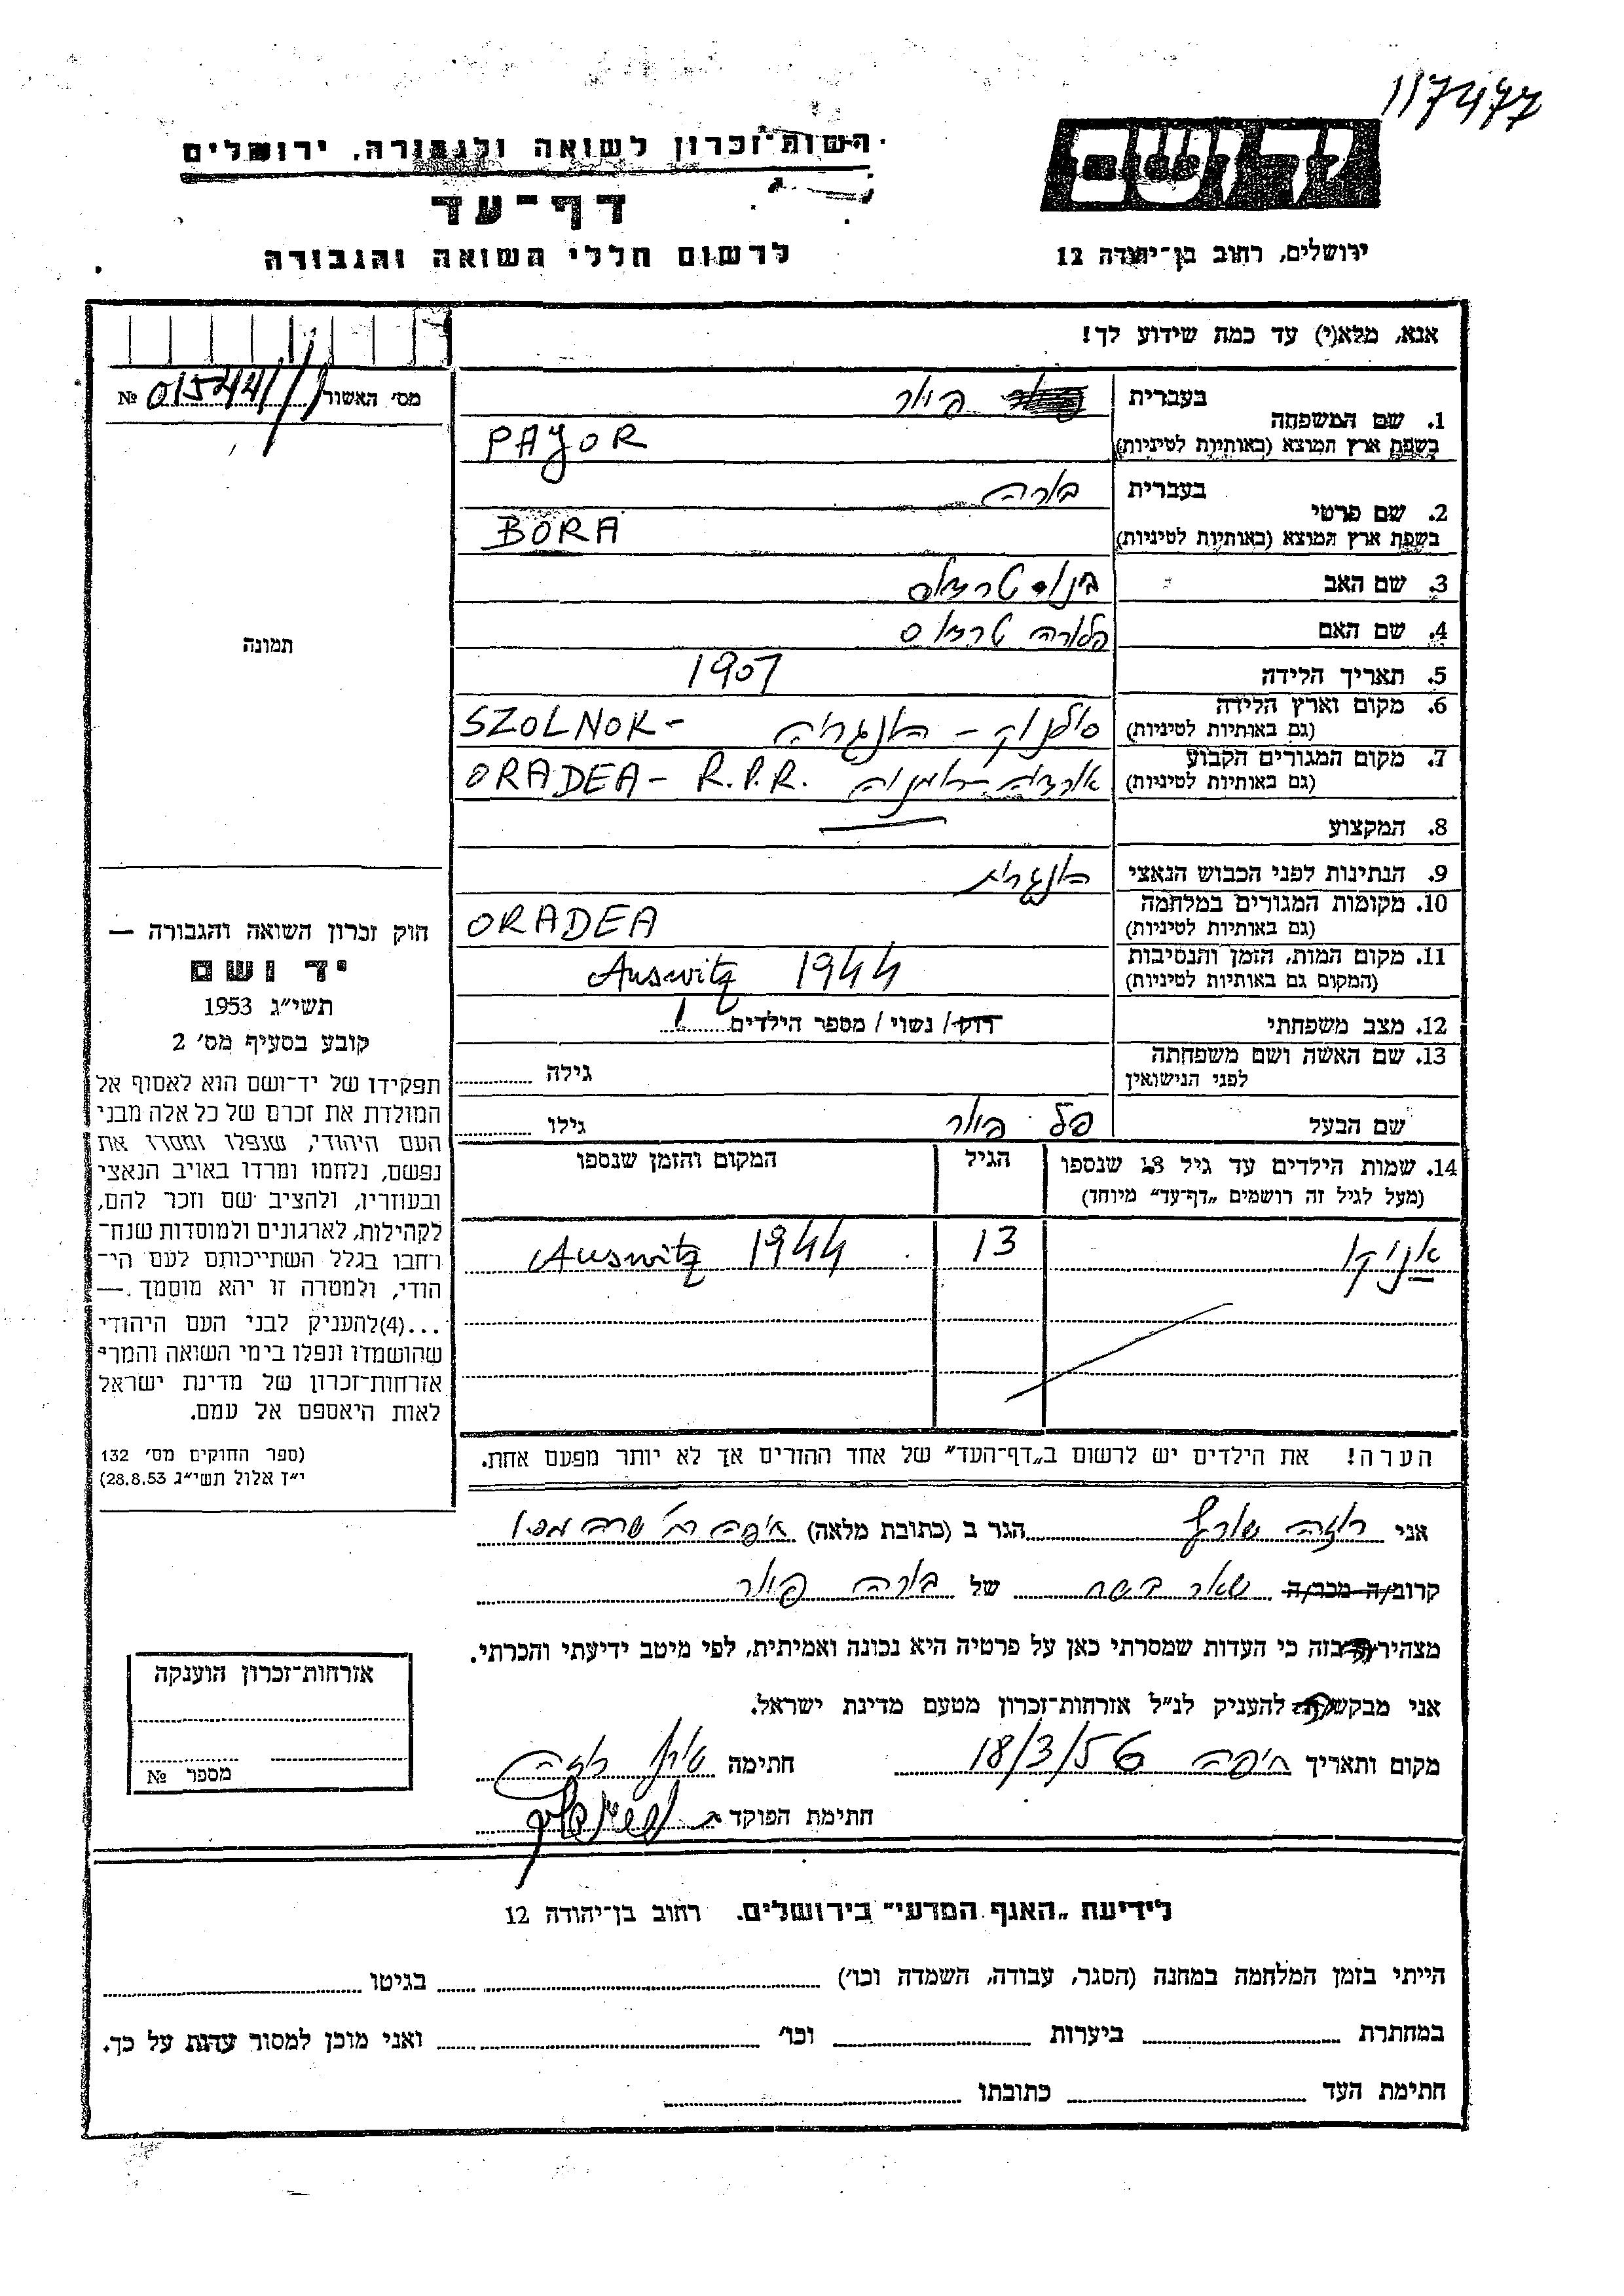 117477
רשות-זכרון לשואה ולגבורה, ירושלים
דף-עד
לרשום חללי השואה והגבורה
יד ושם
ירושלים, רחוב בן-יהודה 12
אנא, מלא(י) עד כמה שידוע לך!
מס' האשור № 01544/1
1. שם המשפחה
בעברית פיור
בשפת ארץ המוצא (באותיות לטיניות) PAJOR
2. שם פרטי
בעברית בורה
בשפת ארץ המוצא (באותיות לטיניות) BORA
3. שם האב
4. שם האם
5. תאריך הלידה 1907
6. מקום וארץ הלידה סולנוק - הונגריה SZOLNOK-
(גם באותיות לטיניות)
7. מקום המגורים הקבוע אורדיה - רומניה ORADEA - R.P.R.
(גם באותיות לטיניות)
8. המקצוע
9. הנתינות לפני הכבוש הנאצי הונגרית
10. מקומות המגורים במלחמה ORADEA
(גם באותיות לטיניות)
11. מקום המות, הזמן והנסיבות Auswitz 1944
(המקום גם באותיות לטיניות)
12. מצב משפחתי רוק/ נשוי/ מספר הילדים 1
13. שם האשה ושם משפחתה
לפני הנישואין גילה
שם הבעל פל פיור גילו
14. שמות הילדים עד גיל 18 שנספו הגיל המקום והזמן שנספו
(מעל לגיל זה רושמים „דף-עד" מיוחד)
אניקו 13 Auswitz 1944
הערה! את הילדים יש לרשום ב„דף-העד" של אחד ההורים אך לא יותר מפעם אחת.
תמונה
חוק זכרון השואה והגבורה —
יד ושם
תשי"ג 1953
קובע בסעיף מס' 2
תפקידו של יד-ושם הוא לאסוף אל
המולדת את זכרם של כל אלה מבני
העם היהודי, שנפלו ומסרו את
נפשם, נלחמו ומרדו באויב הנאצי
ובעוזריו, ולהציב שם וזכר להם,
לקהילות, לארגונים ולמוסדות שנח-
רחבו בגלל השתייכותם לעם הי-
הודי, ולמטרה זו יהא מוסמך —
...(4)להעניק לבני העם היהודי
שהושמדו ונפלו בימי השואה והמרי
אזרחות-זכרון של מדינת ישראל
לאות היאספם אל עמם.
(ספר החוקים מס' 132
י"ז אלול תשי"ג 28.8.53)
אני רוזה שורץ הגר ב (כתובת מלאה) חיפה רח'
קרוב/ה מכר/ה שאר בשר של בורה פיור
מצהיר/ה בזה כי העדות שמסרתי כאן על פרטיה היא נכונה ואמיתית, לפי מיטב ידיעתי והכרתי.
אני מבקש/ת להעניק לנ"ל אזרחות-זכרון מטעם מדינת ישראל.
מקום ותאריך חיפה 18/3/56 חתימה שורץ רוזה
חתימת הפוקד
אזרחות-זכרון הוענקה
מספר №
לידיעת „האגף המדעי" בירושלים. רחוב בן-יהודה 12
הייתי בזמן המלחמה במחנה (הסגר, עבודה, השמדה וכו') בגיטו
במחתרת ביערות וכו' ואני מוכן למסור עדות על כך.
חתימת העד כתובתו